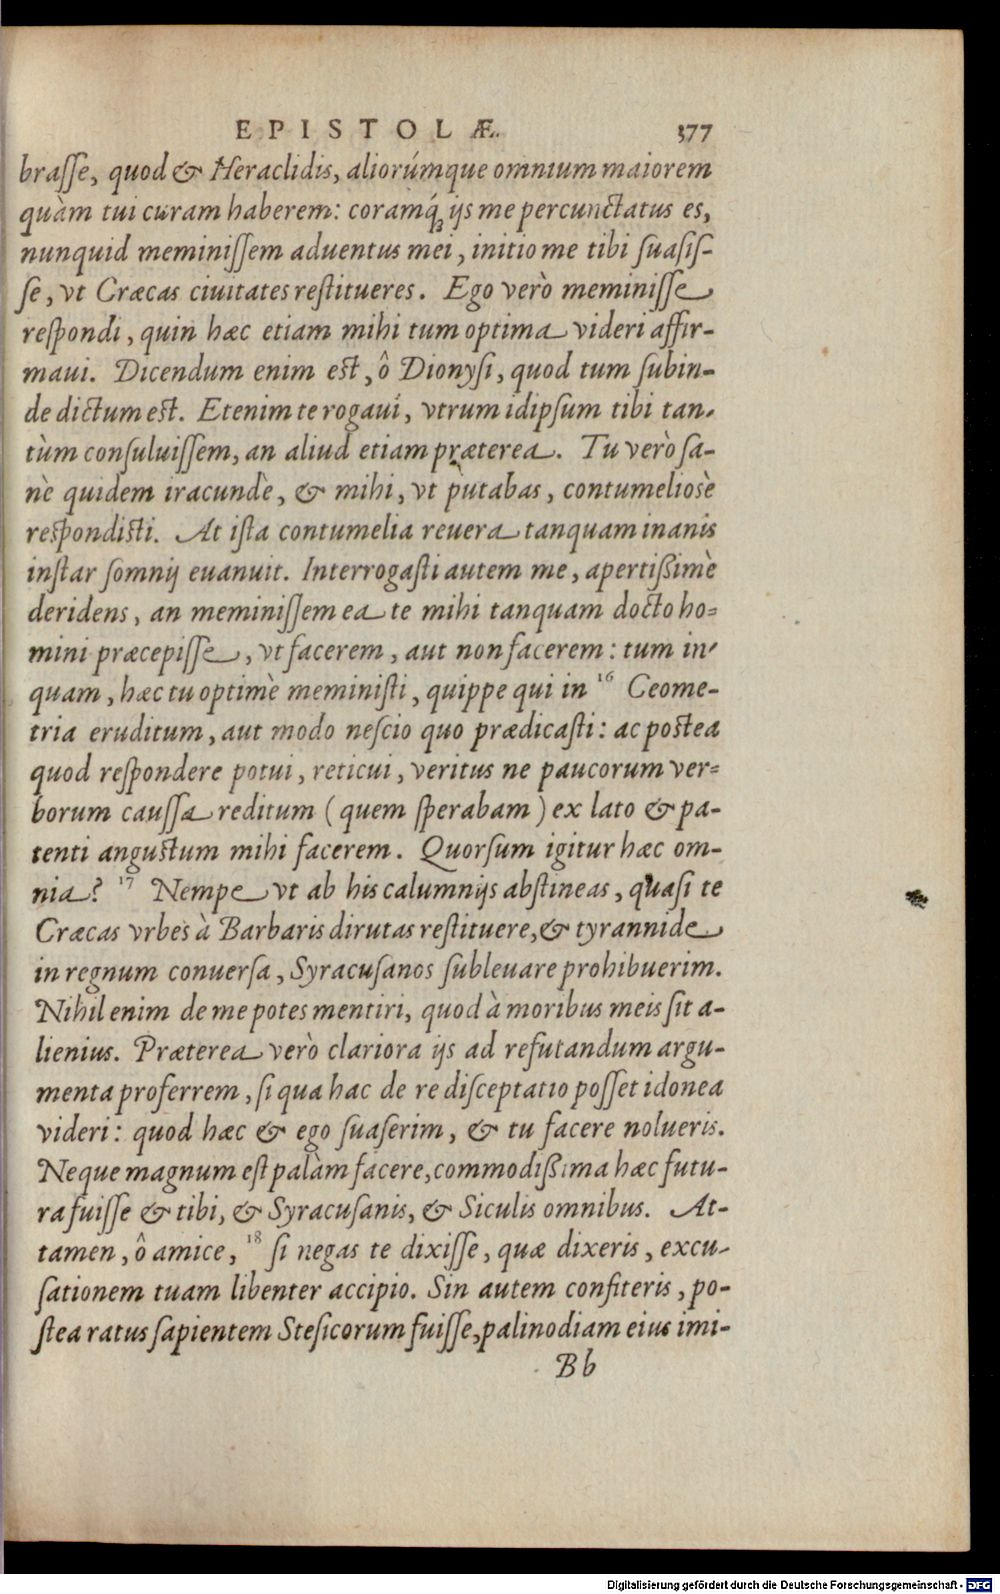 EPISTOLÆ. 377
braſſe, quod & Heraclidis, aliorúmque omnium maiorem
quàm tui curam haberem: coramq́ꝫ ijs me percunctatus es,
nunquid meminiſſem aduentus mei, initio me tibi ſuaſiſ-
ſe, vt Græcas ciuitates reſtitueres. Ego verò meminiſſe
reſpondi, quin hæc etiam mihi tum optima videri affir-
maui. Dicendum enim eſt, ô Dionyſi, quod tum ſubin-
de dictum eſt. Etenim te rogaui, vtrum idipſum tibi tan-
tùm conſuluiſſem, an aliud etiam præterea. Tu verò ſa-
nè quidem iracundè, & mihi, vt putabas, contumelioſè
reſpondiſti. At iſta contumelia reuera tanquam inanis
inſtar ſomnij euanuit. Interrogaſti autem me, apertißimè
deridens, an meminiſſem ea te mihi tanquam docto ho=
mini præcepiſſe, vt facerem, aut non facerem: tum in-
quam, hæc tu optimè meminiſti, quippe qui in 16 Geome-
tria eruditum, aut modo neſcio quo prædicaſti: ac poſtea
quod reſpondere potui, reticui, veritus ne paucorum ver=
borum cauſſa reditum (quem ſperabam) ex lato & pa-
tenti anguſtum mihi facerem. Quorſum igitur hæc om-
nia? 17 Nempe vt ab his calumnijs abſtineas, quaſi te
Græcas vrbes à Barbaris dirutas reſtituere, & tyrannide
in regnum conuerſa, Syracuſanos ſubleuare prohibuerim.
Nihil enim de me potes mentiri, quod à moribus meis ſit a-
lienius. Præterea verò clariora ijs ad refutandum argu-
menta proferrem, ſi qua hac de re diſceptatio poſſet idonea
videri: quod hæc & ego ſuaſerim, & tu facere nolueris.
Neque magnum eſt palàm facere, commodißima hæc futu-
ra fuiſſe & tibi, & Syracuſanis, & Siculis omnibus. At-
tamen, ô amice, 18 ſi negas te dixiſſe, quæ dixeris, excu-
ſationem tuam libenter accipio. Sin autem confiteris, po-
ſtea ratus ſapientem Steſicorum fuiſſe, palinodiam eius imi-
Bb
Digitalisierung gefördert durch die Deutsche Forschungsgemeinschaft - DFG